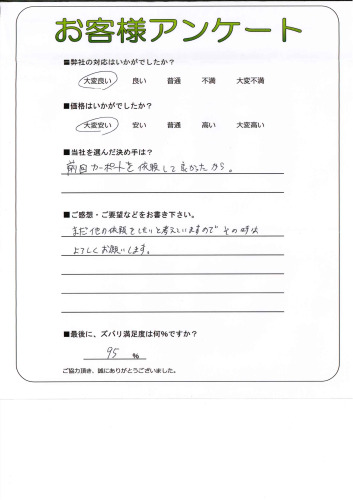 お客様アンケート
■弊社の対応はいかがでしたか?
大変良い 良い 普通 不満 大変不満
■価格はいかがでしたか?
大変安い 安い 普通 高い 大変高い
■当社を選んだ決め手は?
前回カーポートを依頼して良かったから。
■ご感想・ご要望などをお書き下さい。
まだ他の依頼をしたいと考えていますので その時は
よろしくお願いします。
■最後に、ズバリ満足度は何%ですか?
95 %
ご協力頂き、誠にありがとうございました。